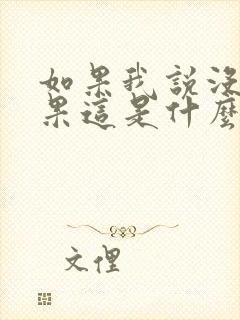 如果我説沒
果這是什麼
文俚